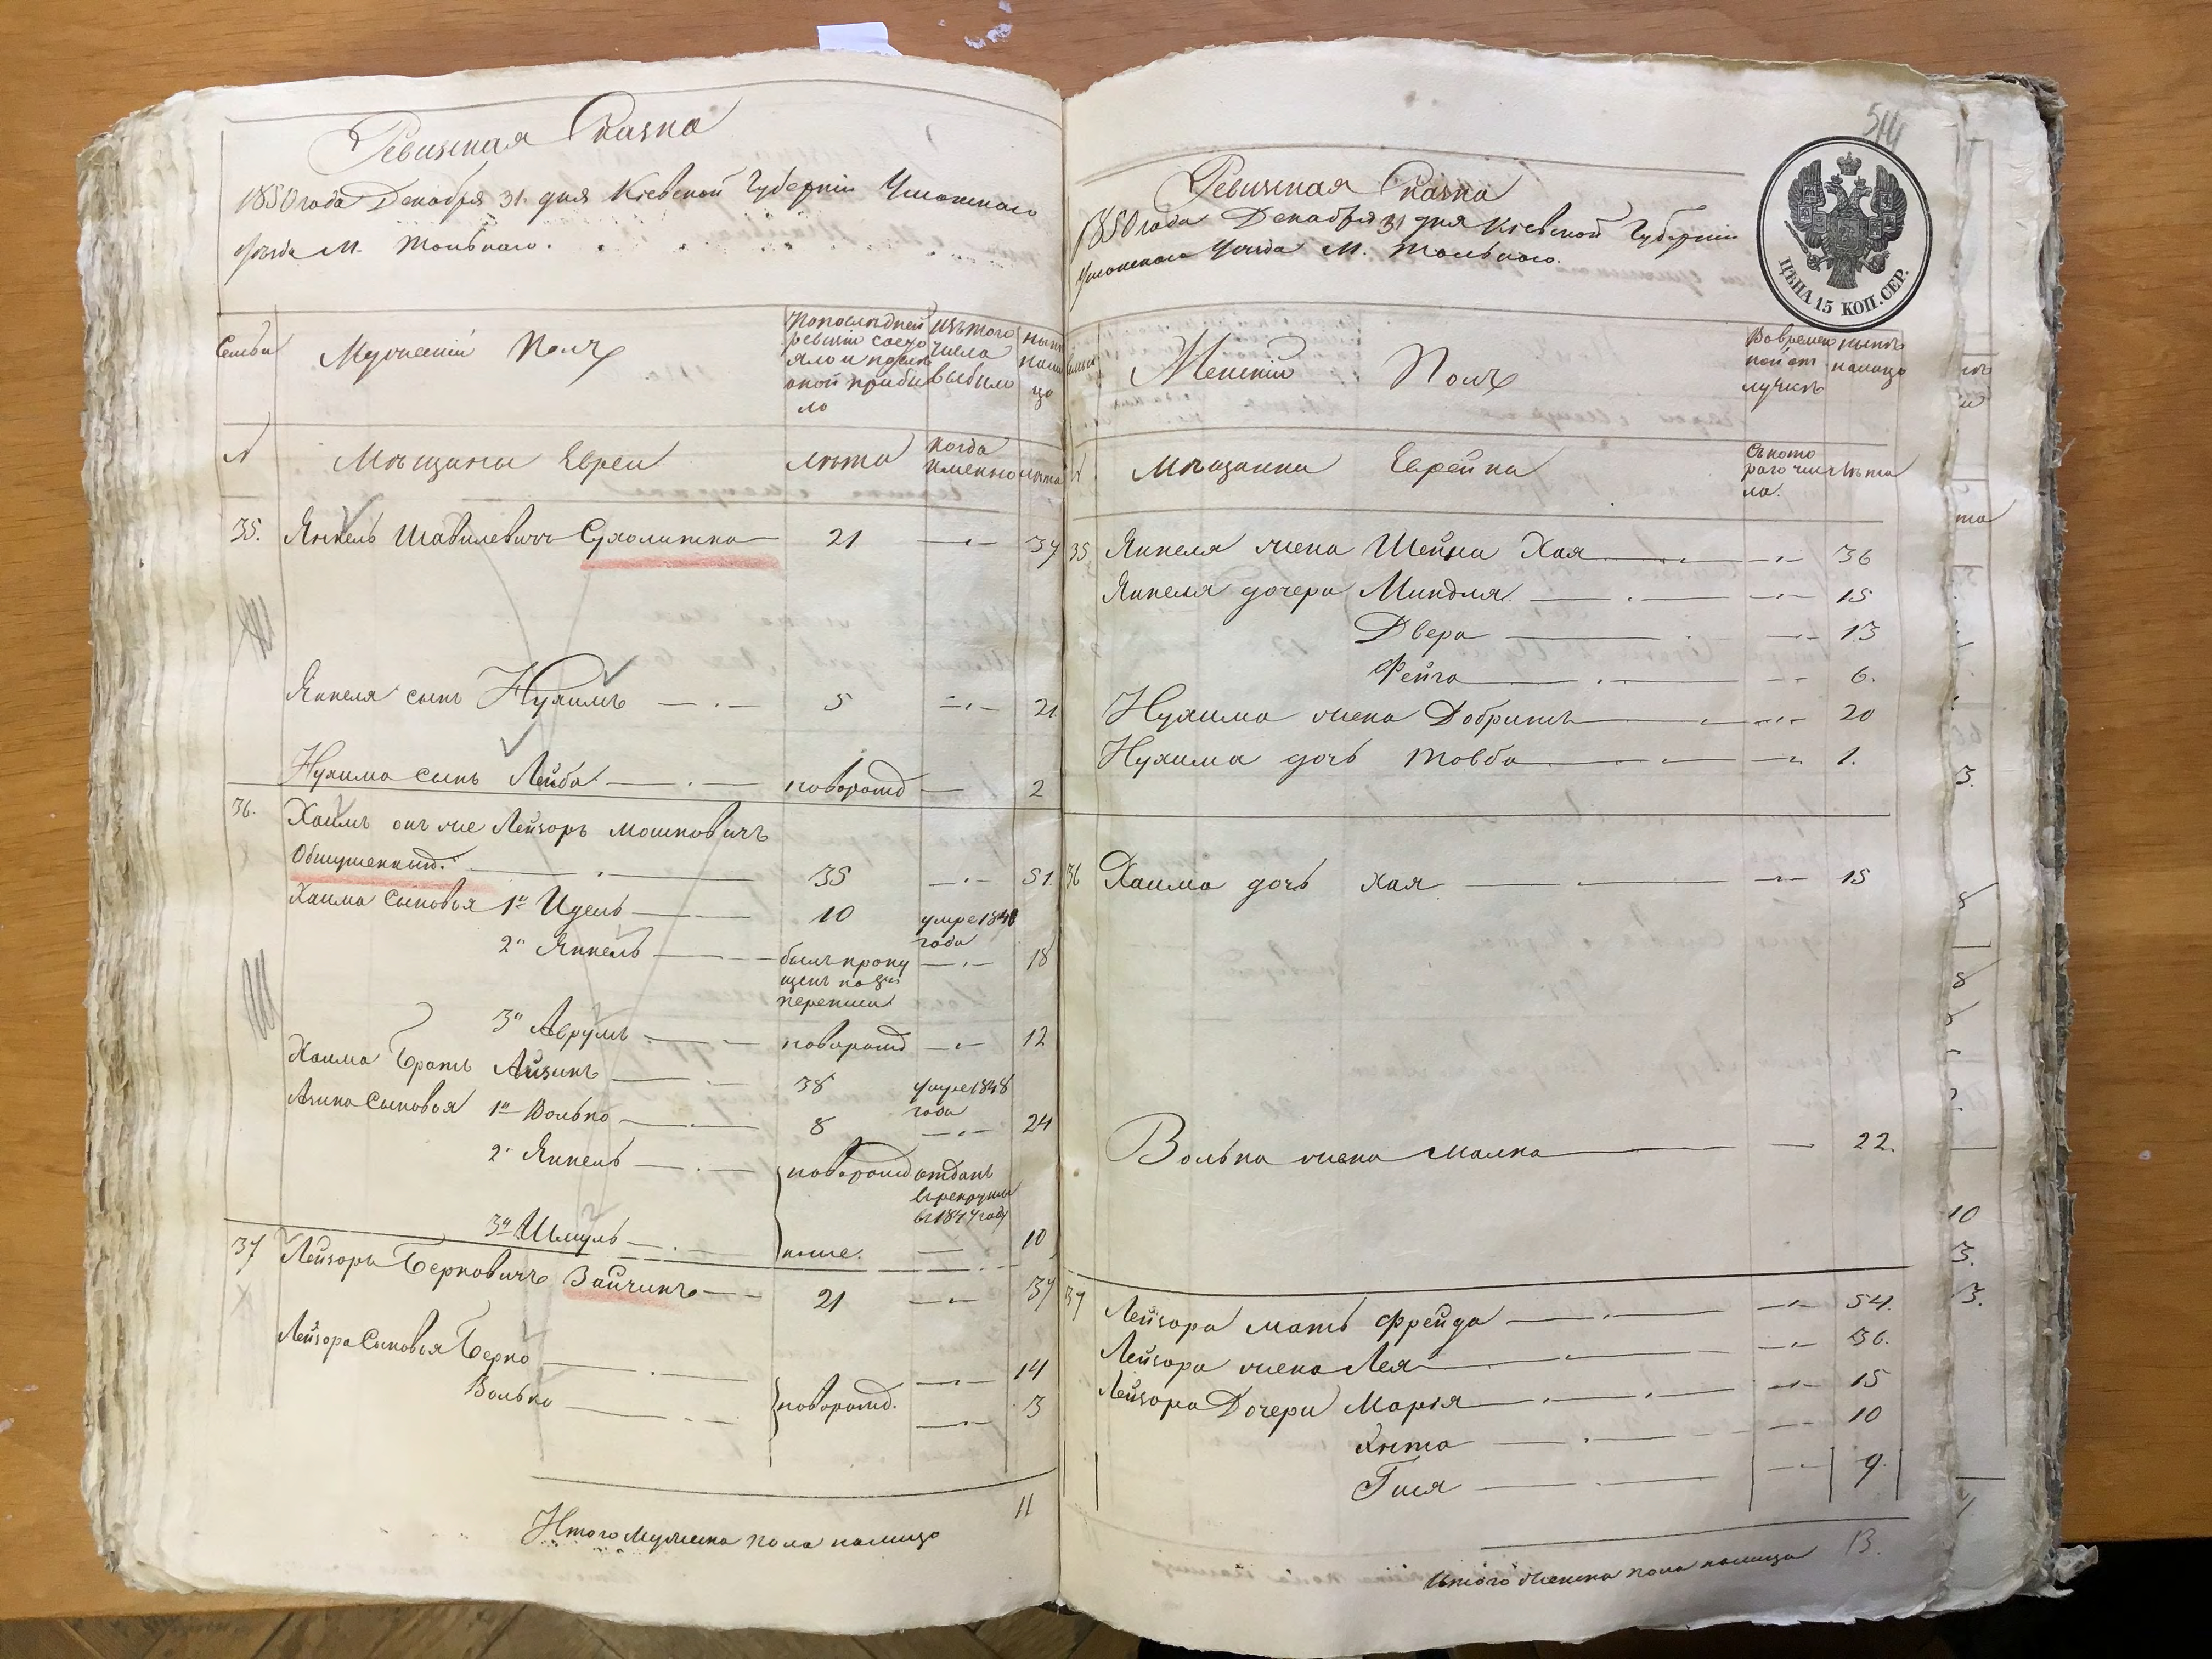 Ревизская Сказка
1850 года Декабря 31 дня Кіевской Губерніи Уманскаго
уезда М. Тольного.
Семьи
Мужескій Полъ
По последней ревизіи состояло и после оной прибыло
Изъ того числа выбыло
Ныне на лицо
№
Мещаны Евреи
Лета
Когда именно
Лета
35. Янкель Шавилевичъ Сухолитка 21 37
Янкеля сынъ Нухимъ 5 21
Нухима сынъ Лейба новорожд 2
36. Хаимъ онъ же Лейзоръ Мошковичъ
Опшуженный. 35 51.
Хаима Сыновья 1й Идель 10 умре 1840 года
2й Янкель былъ пропущенъ по 8й переписи 18
3й Аврумъ новорожд 12
Хаима Братъ Айзикъ 38 умре 1848 года
Азика Сыновья 1й Волько 8 24
2й Янкель новорожд отданъ въ рекруты въ 1844 году
3й Шмуль тоже. 10
37 Лейзоръ Берковичъ Зайчикъ 21 37
Лейзора Сыновья Берко 14
Волько новорожд. 3
Итого Мужеска пола налицо 11
514
Ревизская Сказка
1850 года Декабря 31 дня Кіевской Губерніи
Уманскаго Уезда М. Тольного.
ЦѢНА 15 КОП. СЕР.
Женскій Полъ
Во временной отлучке
Ныне на лицо
Мещанки Еврейки
Съ которого числа.
Лета
35 Янкеля жена Шейна Хая 36
Янкеля дочери Миндля 15
Двера 13
Фейга 6.
Нухима жена Добришъ 20
Нухима дочь Товба 1.
36 Хаима дочь Хая 15
Волька жена Малка 22.
37 Лейзора мать Фрейда 54.
Лейзора жена Лея 36.
Лейзора Дочери Марія 15
Хита 10
Гися 9.
Итого Женска пола налицо 13.